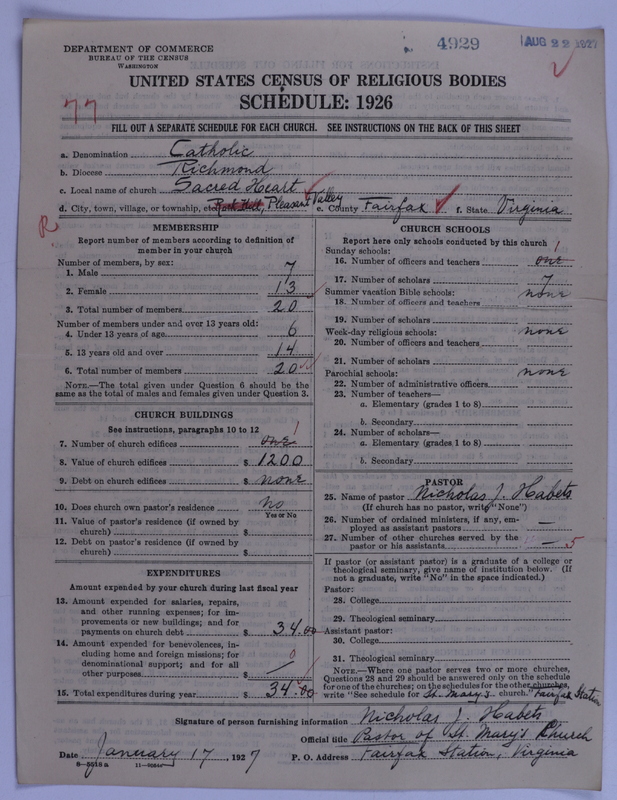 4929
AUG 22 1927
DEPARTMENT OF COMMERCE
BUREAU OF THE CENSUS
WASHINGTON
UNITED STATES CENSUS OF RELIGIOUS BODIES
SCHEDULE: 1926
77
FILL OUT A SEPARATE SCHEDULE FOR EACH CHURCH. SEE INSTRUCTIONS ON THE BACK OF THIS SHEET
a. Denomination Catholic
b. Diocese Richmond
c. Local name of church Sacred Heart
d. City, town, village, or township, etc. Pleasant Valley e. County Fairfax f. State Virginia
R
MEMBERSHIP
Report number of members according to definition of
member in your church
Number of members, by sex:
1. Male 7
2. Female 13
3. Total number of members 20
Number of members under and over 13 years old:
4. Under 13 years of age 6
5. 13 years old and over 14
6. Total number of members 20
NOTE.—The total given under Question 6 should be the
same as the total of males and females given under Question 3.
CHURCH BUILDINGS
See instructions, paragraphs 10 to 12
7. Number of church edifices one 1
8. Value of church edifices $ 1200
9. Debt on church edifices $ none
10. Does church own pastor's residence? No
Yes or No
11. Value of pastor's residence (if owned by
church) $
12. Debt on pastor's residence (if owned by
church) $
EXPENDITURES
Amount expended by your church during last fiscal year
13. Amount expended for salaries, repairs,
and other running expenses; for im-
provements or new buildings; and for
payments on church debt $ 34.00
14. Amount expended for benevolences, in-
cluding home and foreign missions; for
denominational support; and for all
other purposes $ — 0
15. Total expenditures during year $ 34.00
CHURCH SCHOOLS
Report here only schools conducted by this church
Sunday schools:
16. Number of officers and teachers one 1
17. Number of scholars 7
Summer vacation Bible schools: none
18. Number of officers and teachers
19. Number of scholars
Week-day religious schools: none
20. Number of officers and teachers
21. Number of scholars
Parochial schools: none
22. Number of administrative officers
23. Number of teachers—
a. Elementary (grades 1 to 8)
b. Secondary
24. Number of scholars—
a. Elementary (grades 1 to 8)
b. Secondary
PASTOR
25. Name of pastor Nicholas J. Habets
(If church has no pastor, write "None")
26. Number of ordained ministers, if any, em-
ployed as assistant pastors —
27. Number of other churches served by the
pastor or his assistants — 5
If pastor (or assistant pastor) is a graduate of a college or
theological seminary, give name of institution below. (If
not a graduate, write "No" in the space indicated.)
Pastor:
28. College
29. Theological seminary
Assistant pastor:
30. College
31. Theological seminary
NOTE.—Where one pastor serves two or more churches,
Questions 28 and 29 should be answered only on the schedule
for one of the churches; on the schedules for the other churches,
write "See schedule for St. Mary's church." Fairfax Station
Signature of person furnishing information Nicholas J. Habets
Official title Pastor of St. Mary's Church
Date January 17, 1927 P. O. Address Fairfax Station, Virginia